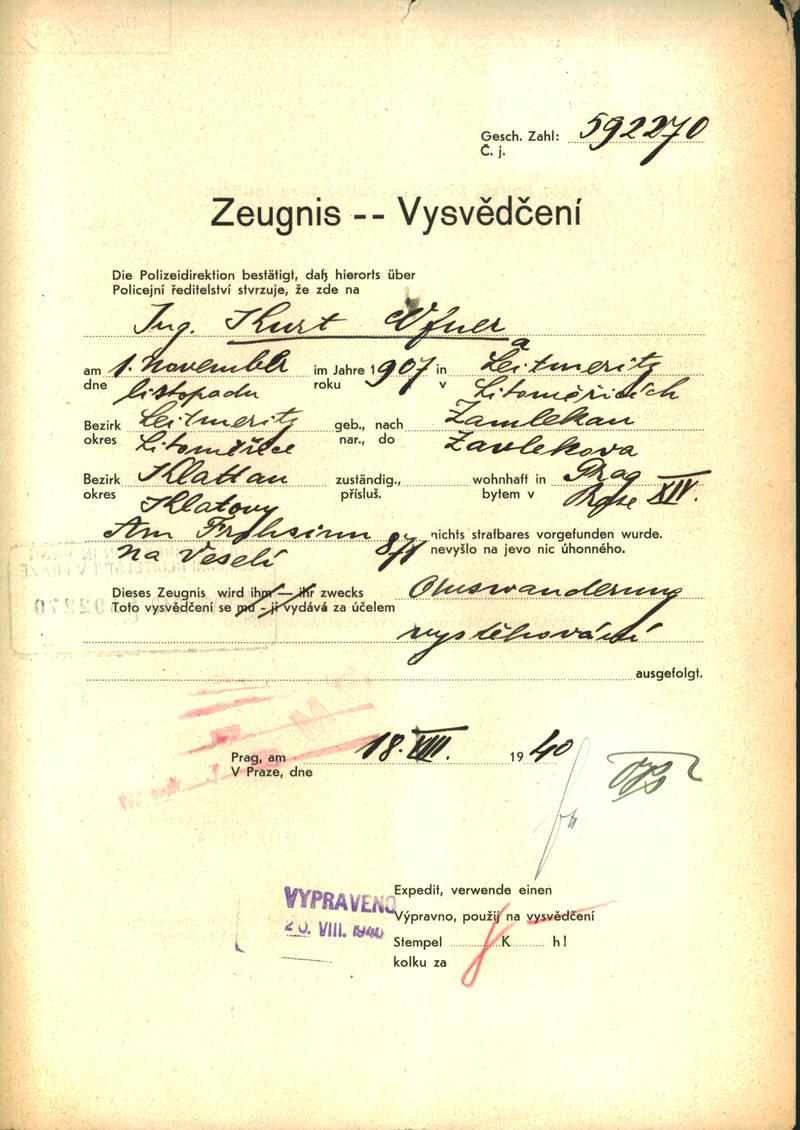 Gesch. Zahl: 592270
Č. j.
Zeugnis -- Vysvědčení
Die Polizeidirektion bestätigt, daß hierorts über
Policejní ředitelství stvrzuje, že zde na
Ing. Kurt
am 1. November im Jahre 1907 in Leitmeritz
dne listopadu roku v Litoměřicích
Bezirk Leitmeritz geb., nach Zamlekau
okres Litoměřice nar., do Zavlekova
Bezirk Klattau zuständig., wohnhaft in Prag
okres Klatovy přísluš. bytem v Praze XIV.
Am Frohsinn 871 nichts strafbares vorgefunden wurde.
Na Veselí nevyšlo na jevo nic úhonného.
Dieses Zeugnis wird ihm — ihr zwecks Auswanderung
Toto vysvědčení se mu - jí vydává za účelem
vystěhování
ausgefolgt.
Prag, am 18. VIII. 1940
V Praze, dne
Expedit, verwende einen
VYPRAVENO
Výpravno, použij na vysvědčení
20. VIII. 1940
Stempel K h!
kolku za